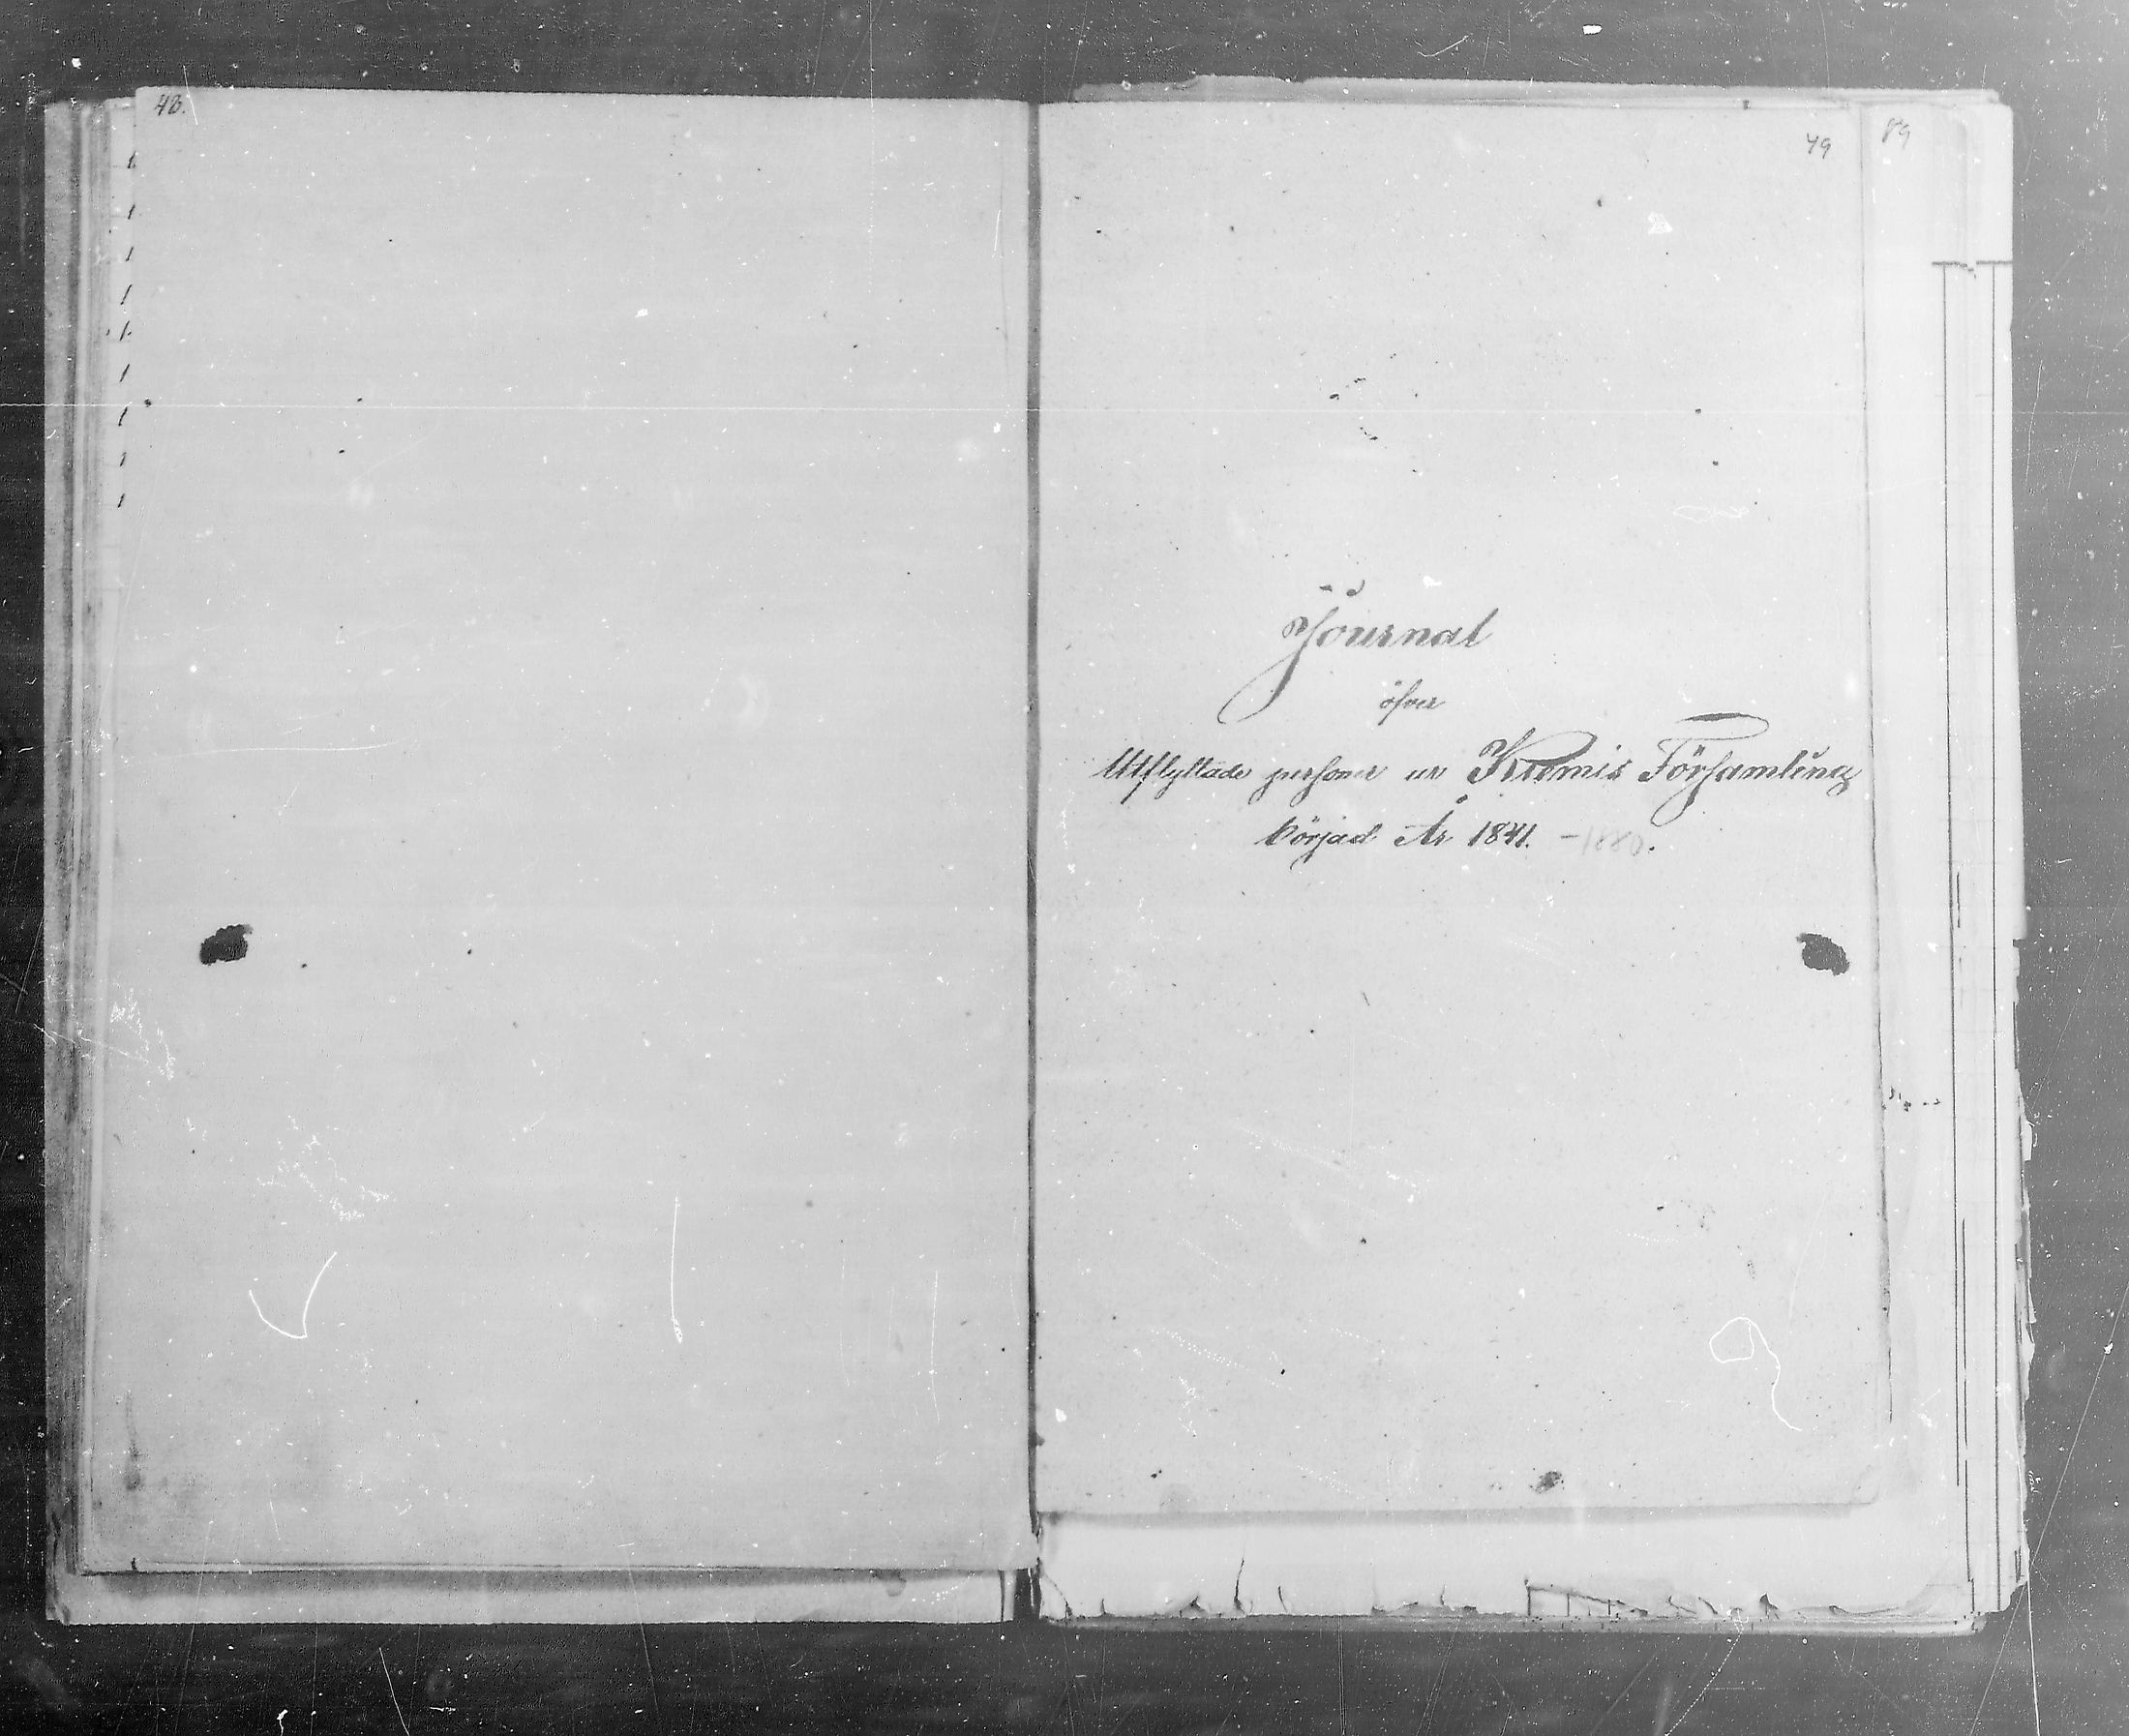 48.
49
89
Journal
öfver
Utflyttade personer ur Kuomis Församling
börjad År 1841. -1880.